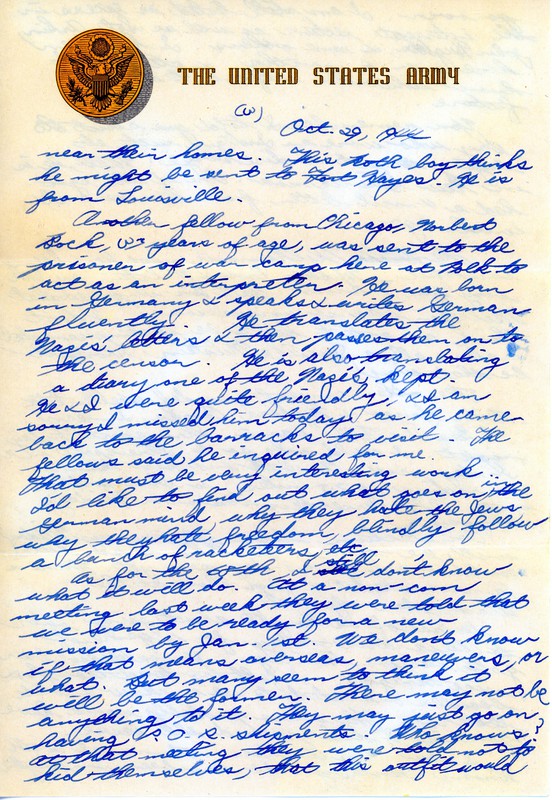 THE UNITED STATES ARMY
Oct. 29, 1944
near their homes. This boy thinks
he might be sent to Fort Hayes. He is
from Louisville.
Another fellow from Chicago, Norbert
Bock, 23 years of age, was sent to the
prisoner of war camp here at Polk to
act as an interpreter. He was born
in Germany & speaks & writes German
fluently. He translates the
Nazis' letters & then passes them on to
the censor. He is also translating
a diary one of the Nazis kept.
He & I were quite friendly, & I am
sorry I missed him today as he came
back to the barracks to visit. The
fellows said he inquired for me.
That must be very interesting work.
I'd like to find out what goes on in the
German mind, why they hate the Jews
why they hate freedom, blindly follow
a bunch of racketeers, etc.
As for the I still don't know
what it will do. At a non-com
meeting last week they were told that
we were to be ready for a new
mission by Jan. 1st. We don't know
if that means overseas, maneuvers, or
what. But many seem to think it
will be the former. There may not be
anything to it. They may just go on
having P.O.E. shipments. Who knows?
At that meeting they were told not to
kid themselves, that this outfit would